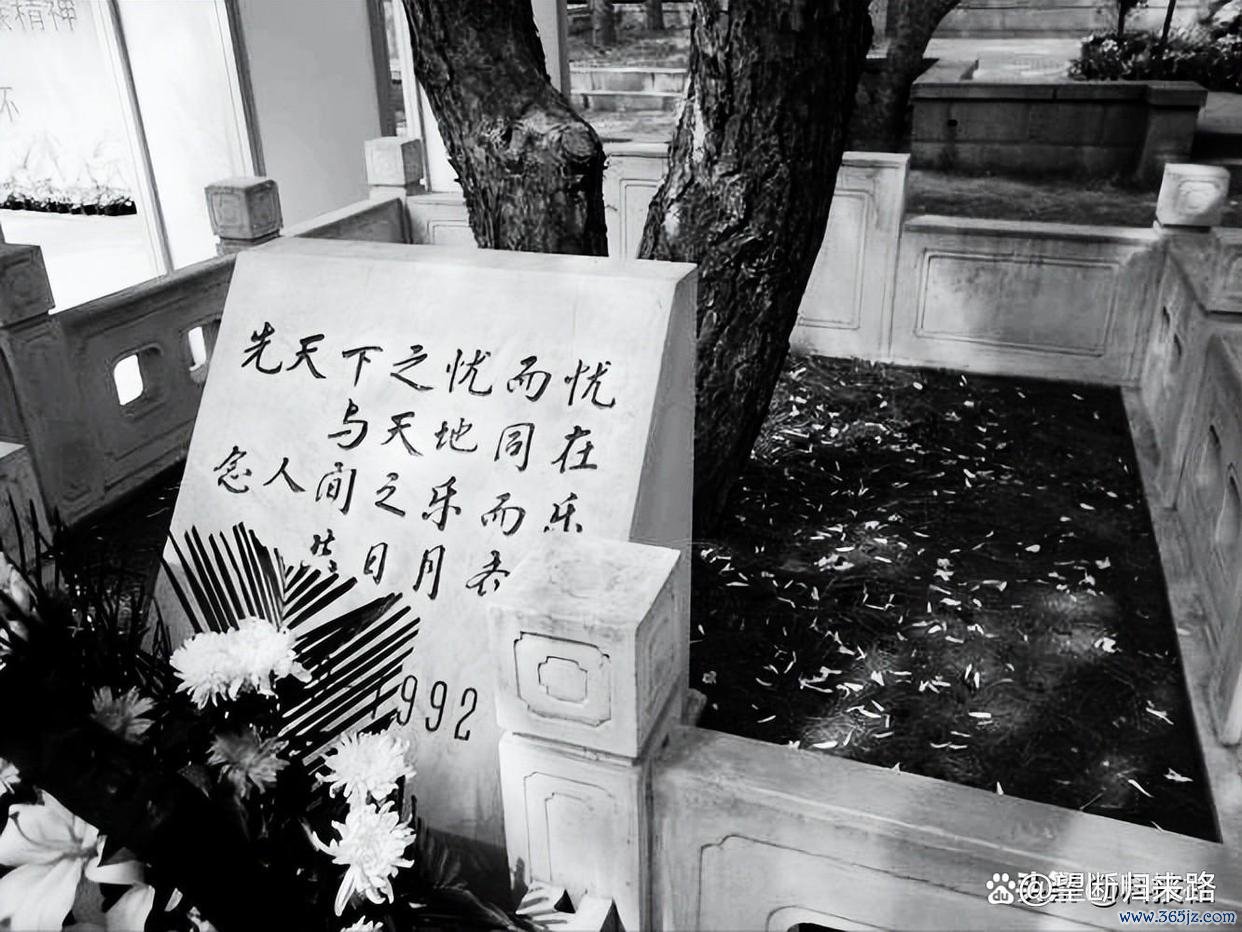 精神
先天下之忧而忧
与天地同在
念人间之乐而乐
日月
1992
@望断归来路
www.365jz.com